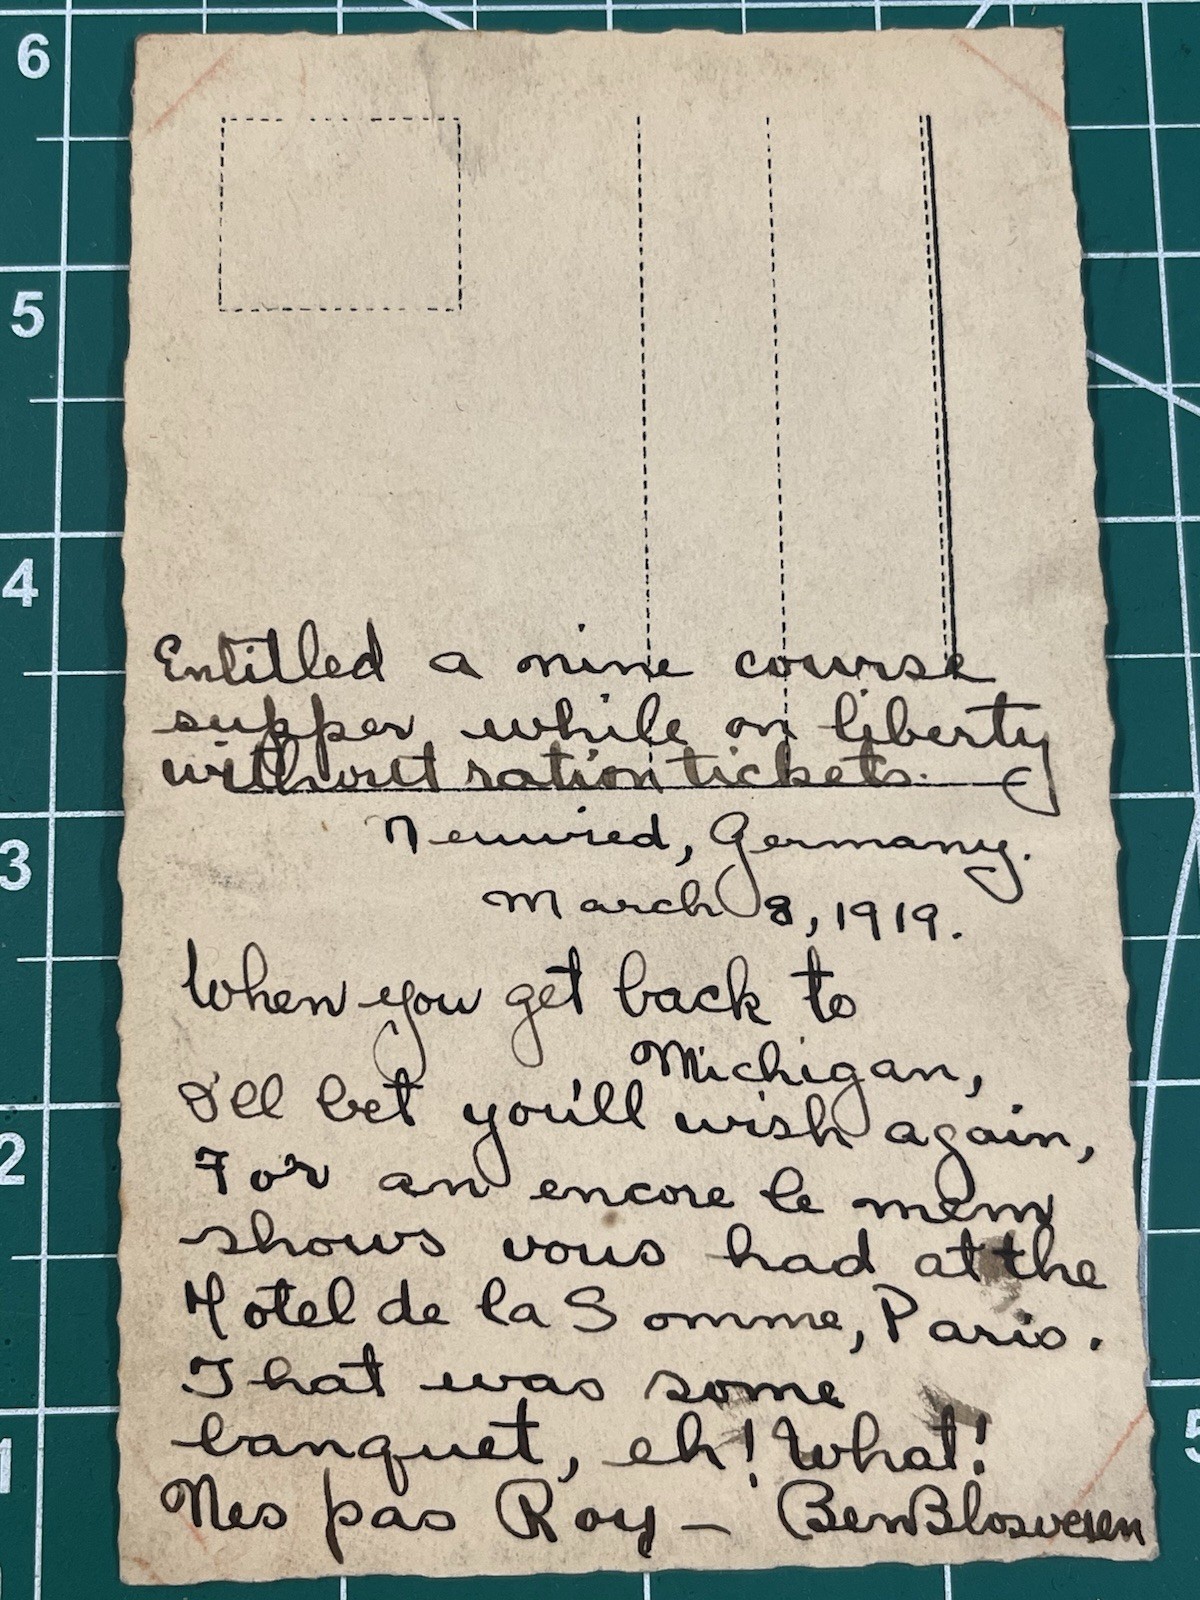 6
5
4
3
2
1
5
Entitled a nine course
supper while on liberty
without ration tickets.
Neuwied, Germany.
March 8, 1919.
When you get back to
Michigan,
I'll bet you'll wish again,
For an encore le mem
shows vous had at the
Hotel de la Somme, Paris.
That was some
banquet, eh! What!
Nes pas Roy – Ben